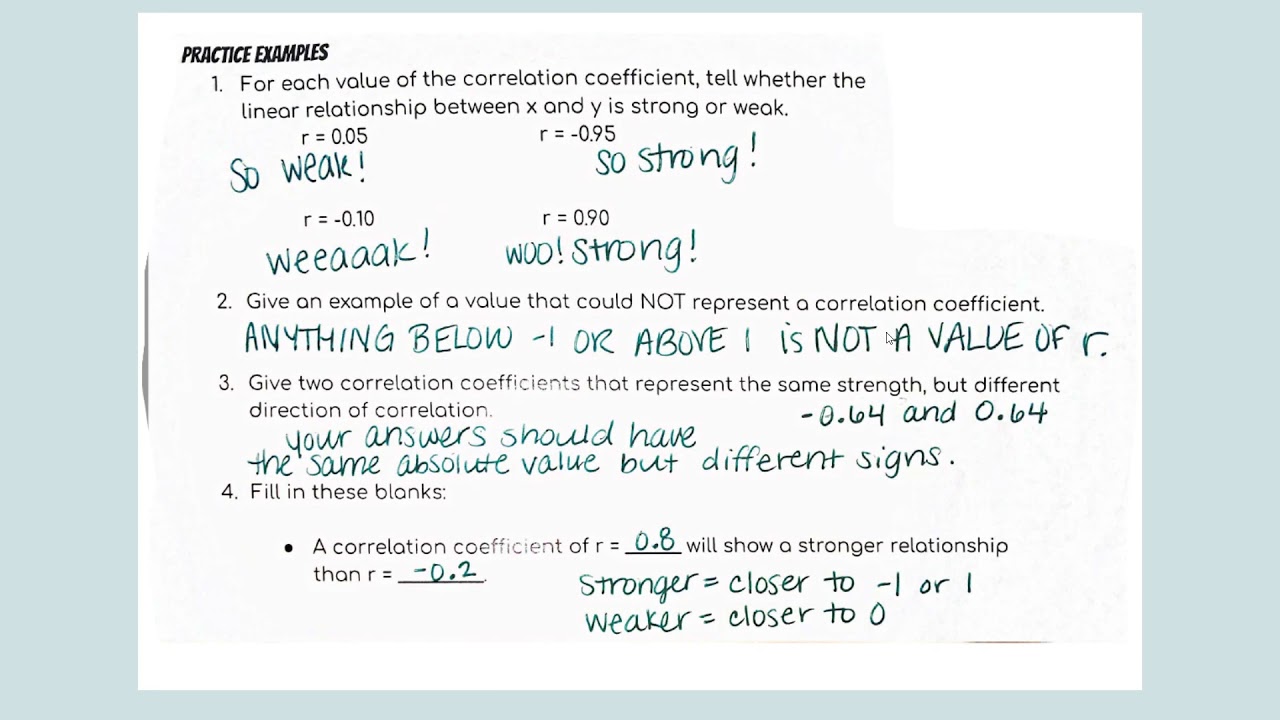 PRACTICE EXAMPLES
1. For each value of the correlation coefficient, tell whether the
linear relationship between x and y is strong or weak.
r = 0.05 r = -0.95
So weak! so strong!
r = -0.10 r = 0.90
weeaaak! woo! strong!
2. Give an example of a value that could NOT represent a correlation coefficient.
ANYTHING BELOW -1 OR ABOVE 1 is NOT A VALUE OF r.
3. Give two correlation coefficients that represent the same strength, but different
direction of correlation. -0.64 and 0.64
your answers should have
the same absolute value but different signs.
4. Fill in these blanks:
• A correlation coefficient of r = 0.8 will show a stronger relationship
than r = -0.2.
stronger = closer to -1 or 1
weaker = closer to 0